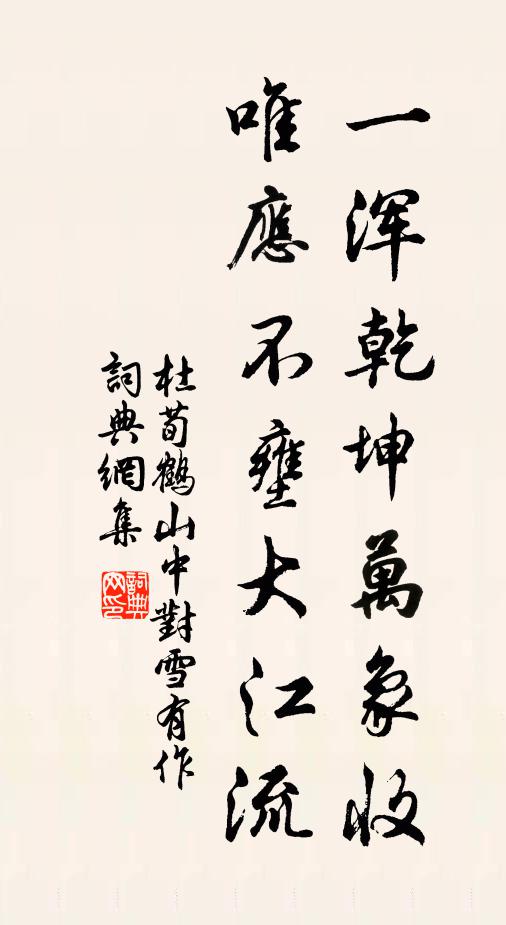 一渾乾坤萬象收
唯應不壅大江流
杜荀鶴山中對雪有作
詞典網集
詞典
网印